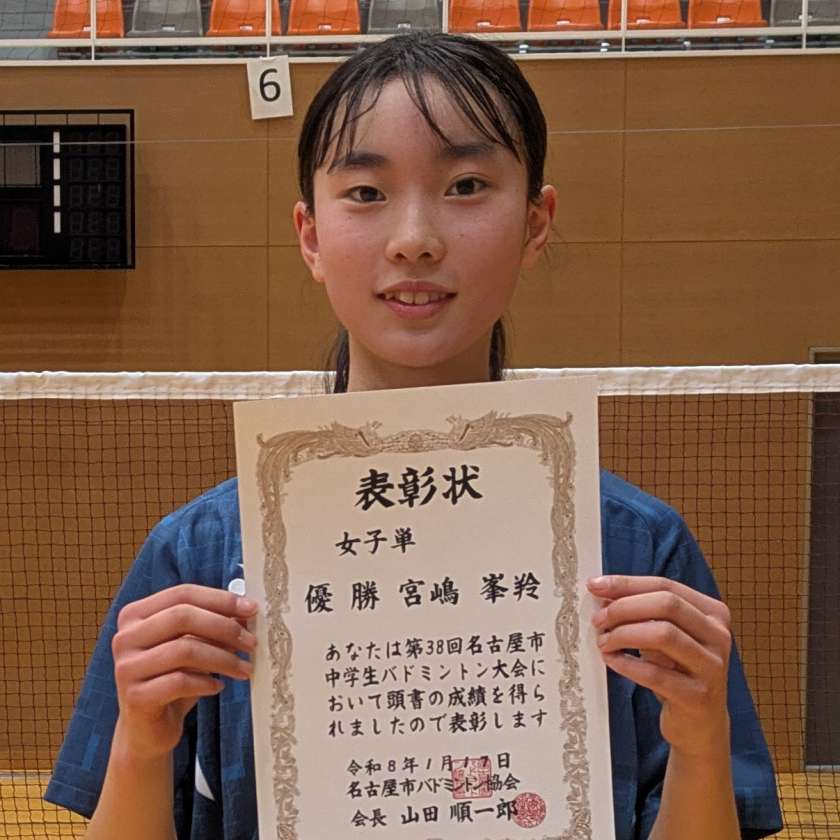 6
表彰状
女子単
優勝 宮嶋 峯羚
あなたは第38回名古屋市
中学生バドミントン大会に
おいて頭書の成績を得ら
れましたので表彰します
令和8年1月17日
名古屋市バドミントン協会
会長 山田 順一郎